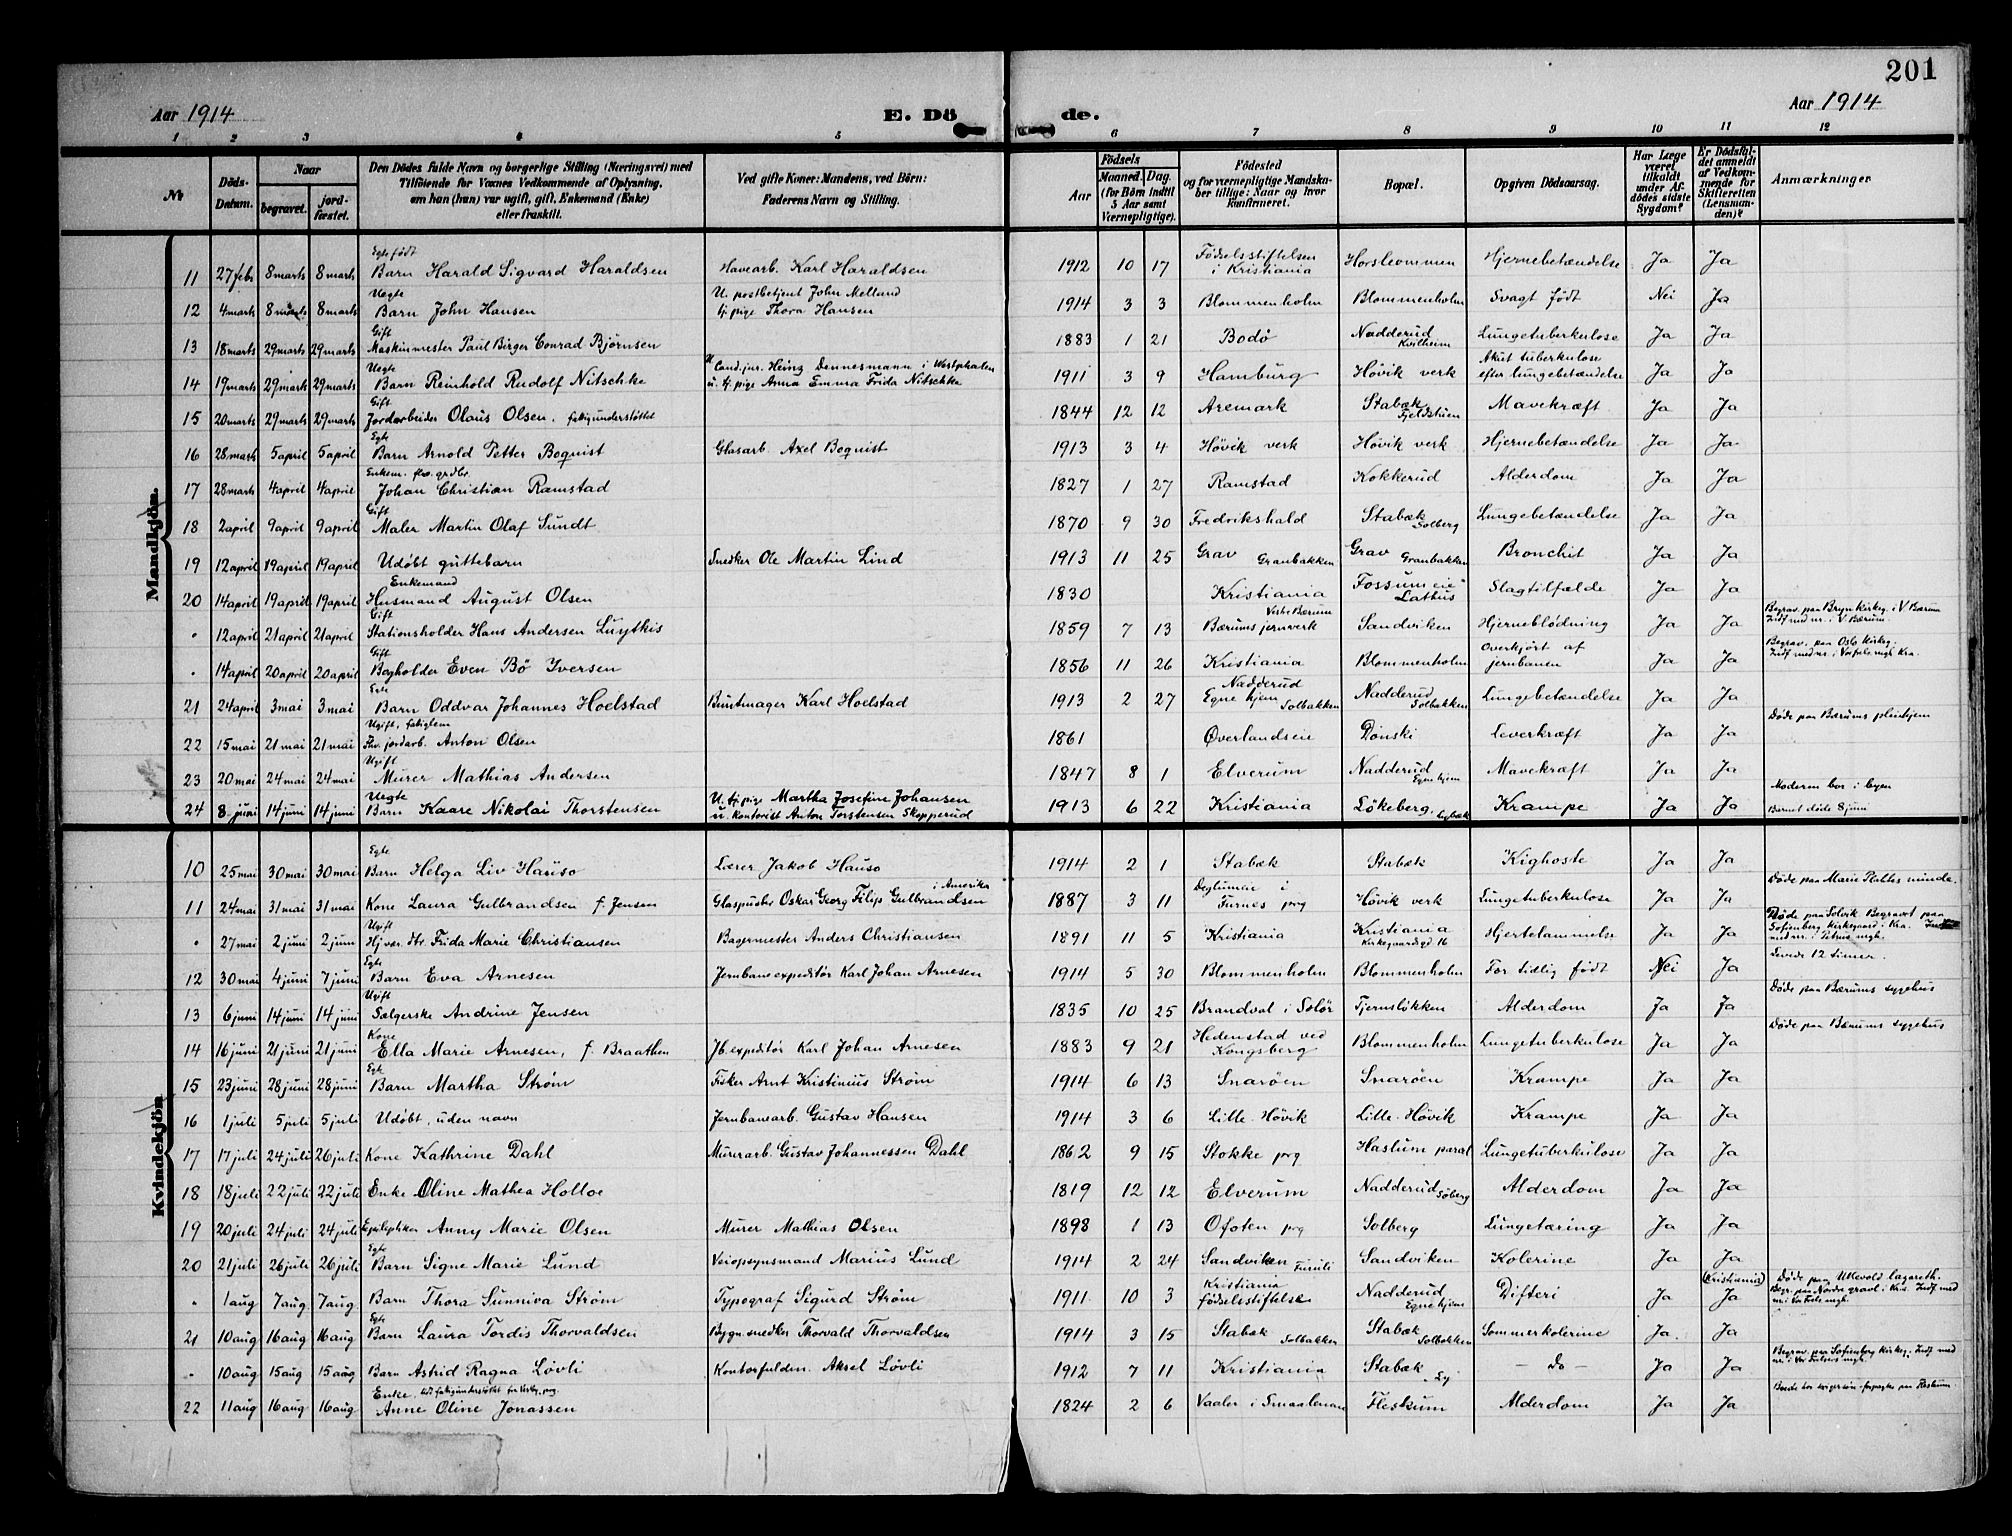 201
Aar 1914
E. Dö
de.
Aar 1914
1 2 3 4 5 6 7 8 9 10 11 12
No
Döds-Datum.
Naar
begravet.
jordfæstet.
Den Dödes fulde Navn og borgerlige Stilling (Næringsvei) med
Tilföiende for Voxnes Vedkommende af Oplysning,
om han (hun) var ugift, gift, Enkemand (Enke)
eller fraskilt.
Ved gifte Koner: Mandens, ved Börn:
Faderens Navn og Stilling.
Födsels
Aar
Maaned. Dag.
(for Börn indtil
5 Aar samt
Værnepligtige).
Födested
og for værnepligtige Mandska-
ber tillige: Naar og hvor
konfirmeret.
Bopæl.
Opgiven Dödsaarsag.
Har Læge
været
tilkaldt
under Af-
dödes sidste
Sygdom?
Er Dödsfal-
det anmeldt
af Vedkom-
mende for
Skifteretten
(Lensman-
den)?
Anmærkninger
Mandkjön.
Egte født
11 27 febr 8 marts 8 marts Barn Harald Sigvard Haraldsen Havearb. Karl Haraldsen 1912 10 17 Fødselsstiftelsen i Kristiania Horsleommen Hjernebetændelse Ja Ja
Uegte
12 4 marts 8 marts 8 marts Barn John Hansen U. postbetjent John Melland tj. pige Thora Hansen 1914 3 3 Blommenholm Blommenholm Svagt født Nei Ja
Gift
13 18 marts 29 marts 29 marts Maskinmester Paul Birger Conrad Bjørnsen 1883 1 21 Bodø Nadderud Kvilheim Lungetuberkulose Ja Ja
Uegte
14 19 marts 29 marts 29 marts Barn Reinhold Rudolf Nitschke U. Cand. jur. Heinz Dennesmann i Westphalen u. tj. pige Anna Emma Frida Nitschke 1911 3 9 Hamburg Høvik verk Akut tuberkulose efter lungebetændelse Ja Ja
Gift
15 20 marts 29 marts 29 marts Jordarbeider Olaus Olsen. fattigunderstøttet 1844 12 12 Aremark Stabæk Fjeldstuen Mavekræft Ja Ja
Egte
16 28 marts 5 april 5 april Barn Arnold Petter Boquist Glasarb. Axel Boquist 1913 3 4 Høvik verk Høvik verk Hjernebetændelse Ja Ja
Enkem. fhv. grdbr.
17 28 marts 4 april 4 april Johan Christian Ramstad 1827 1 27 Ramstad Kokkerud Alderdom Ja Ja
Gift
18 2 april 9 april 9 april Maler Martin Olaf Sundt 1870 9 30 Fredrikshald Stabæk Solberg Lungebetændelse Ja Ja
19 12 april 19 april 19 april Udøbt guttebarn Snedker Ole Martin Lind 1913 11 25 Grav Granbakken Grav Granbakken Bronchit Ja Ja
Enkemand
20 14 april 19 april 19 april Husmand August Olsen 1830 Kristiania Fossum eie Lathus Slagtilfælde Ja Ja
Gift
" 12 april 21 april 21 april Stationsholder Hans Andersen Luytkis 1859 7 13 Vestre Bærum Bærums jernverk Sandviken Hjerneblødning Ja Ja Begrav. paa Bryn Kirkeg. i V. Bærum Indf. med nr. i V. Bærum.
Gift
" 14 april 20 april 20 april Bogholder Even Bö Iversen 1856 11 26 Kristiania Blommenholm Overkjört af jernbanen Ja Ja Begrav. paa Oslo Kirkeg. Indf. med nr. i Vor Frels. mgh. Kra.
Egte
21 24 april 3 mai 3 mai Barn Oddvar Johannes Hoelstad Buntmager Karl Hoelstad 1913 2 27 Nadderud Egne hjem Solbakken Nadderud Solbakken Lungebetændelse Ja Ja
Ugift, fattiglem
22 15 mai 21 mai 21 mai Fhv. jordarb. Anton Olsen 1861 Øverlandseie Dønski Leverkræft Ja Ja Døde paa Bærums pleiehjem
Ugift
23 20 mai 24 mai 24 mai Murer Mathias Andersen 1847 8 1 Elverum Nadderud Egne hjem Mavekræft Ja Ja
Uegte
24 8 juni 14 juni 14 juni Barn Kaare Nikolai Thorstensen U. tj. pige Martha Josefine Johansen u. kontorist Anton Torstensen Skopperud 1913 6 22 Kristiania Løkeberg. Krampe Ja Ja Moderen bor i byen Barnet døde 8 juni
Kvindekjön
Egte
10 25 mai 30 mai 30 mai Barn Helga Liv Hauso Lærer Jakob Hauso 1914 2 1 Stabæk Stabæk Kighoste Ja Ja
11 24 mai 31 mai 31 mai Kone Laura Gulbrandsen f. Jensen Glaspuster Oskar Georg Filip Gulbrandsen i Amerika 1887 3 11 Deglumeie i Furnes prg Høvik verk Lungetuberkulose Ja Ja Døde paa Marie Plahtes minde.
Ugift
" 27 mai 2 juni 2 juni Hj.vær. dtr Frida Marie Christiansen Bagermester Anders Christiansen 1891 11 5 Kristiania Kristiania Kirkegaardsgd 16 Hjertelammelse Ja Ja Døde paa Solvik Begravet paa Sofienberg Kirkegaard i Kra. Indf med nr. i Petrus mgh.
Egte
12 30 mai 4 juni 7 juni Barn Eva Arnesen Jernbaneexpeditør Karl Johan Arnesen 1914 5 30 Blommenholm Blommenholm For tidlig født Nei Ja Levede 12 timer.
Ugift
13 6 juni 14 juni 14 juni Sælgerske Andrine Jensen 1835 10 25 Brandval i Solør Tjernsløkken Alderdom Ja Ja Døde paa Bærums sygehus
Kone
14 16 juni 21 juni 21 juni Ella Marie Arnesen, f. Braathen Jb. expeditør Karl Johan Arnesen 1883 9 21 Hedenstad ved Kongsberg Blommenholm Lungetuberkulose Ja Ja Døde paa Bærums sygehus
Egte
15 23 juni 28 juni 28 juni Barn Martha Strøm Fisker Arnt Kristinius Strøm 1914 6 13 Snarøen Snarøen Krampe Ja Ja
16 1 juli 5 juli 5 juli Udøbt, uden navn Jernbanearb. Gustav Hansen 1914 3 6 Lille-Høvik Lille-Høvik Krampe Ja Ja
17 17 juli 24 juli 26 juli Kone Kathrine Dahl Murerarb. Gustav Johannessen Dahl 1862 9 15 Stokke prg Haslum parcel Lungetuberkulose Ja Ja
18 18 juli 22 juli 22 juli Enke Oline Mathea Holloe 1819 12 12 Elverum Nadderud Söberg Alderdom Ja Ja
19 20 juli 24 juli 24 juli Epileptiker Anny Marie Olsen Murer Mathias Olsen 1898 1 13 Ofoten prg Solberg Lungetæring Ja Ja
Egte
20 21 juli 26 juli 26 juli Barn Signe Marie Lund Veiopsynsmand Marius Lund 1914 2 24 Sandviken Furuli Sandviken Kolerine Ja Ja
" 1 aug 7 aug 7 aug Barn Thora Sunniva Strøm Typograf Sigurd Strøm 1911 10 3 Kristiania fødselsstiftelse Nadderud Egne hjem Difteri Ja (Kristiania) Ja Døde paa Ullevold lazareth. Begr. paa Nordre gravl. i Kra. Indf med nr. i Vor Frels. mgh.
Egte
21 10 aug 16 aug 16 aug Barn Laura Tordis Thorvaldsen Bygn. snedker Thorvald Thorvaldsen 1914 3 15 Stabæk Solbakken Stabæk Solbakken Sommerkolerine Ja. Ja
" 10 aug 15 aug 15 aug Barn Astrid Ragna Løvli Kontorfuldm. Aksel Løvli 1912 7 11 Kristiania Stabæk Ly - Do - Ja Ja Begrav. paa Sofienberg Kirkeg. Indf med nr. i Vor Frelsers mgh.
Enke.
22 11 aug 16 aug 16 aug Anne Oline Jonassen 1824 2 6 Vaaler i Smaalenene Fleskum Alderdom Ja Ja